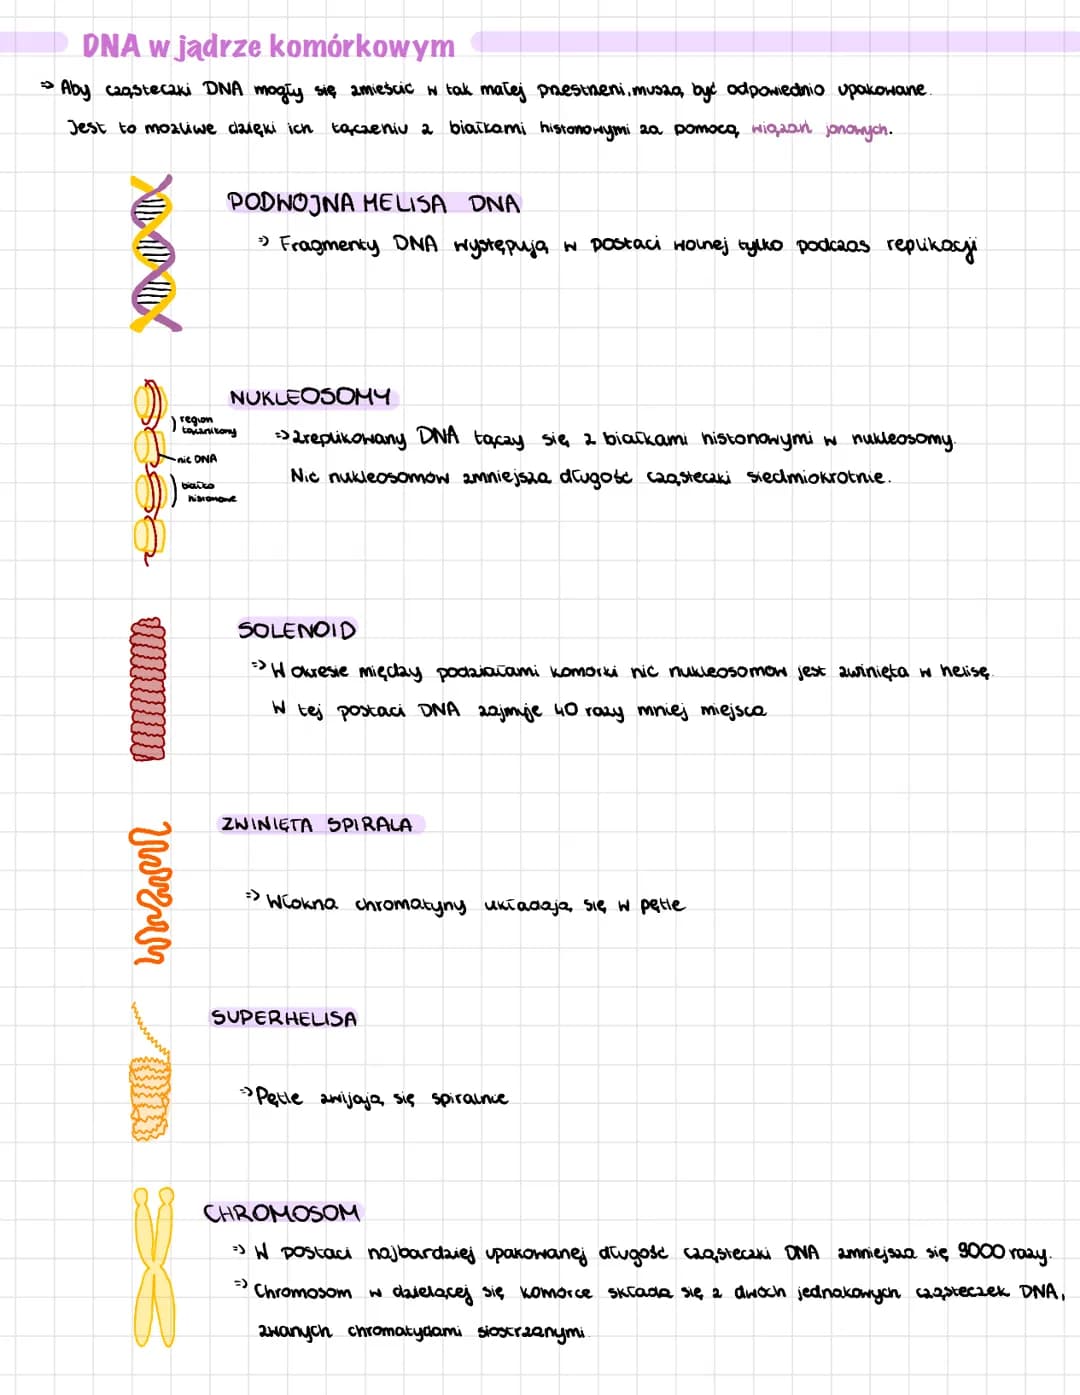 DNA w jądrze komórkowym
=> Aby cząsteczki DNA mogły się zmieścić w tak małej przestrzeni, muszą być odpowiednio upakowane.
Jest to możliwe dzięki ich łączeniu z białkami histonowymi za pomocą wiązań jonowych.
PODWÓJNA HELISA DNA
=> Fragmenty DNA występują w postaci wolnej tylko podczas replikacji
NUKLEOSOMY
region
łącznikowy
=> Zreplikowany DNA łączy się z białkami histonowymi w nukleosomy.
nić DNA
Nić nukleosomów zmniejsza długość cząsteczki siedmiokrotnie.
białko
histonowe
SOLENOID
=> W okresie między podziałami komórki nić nukleosomów jest zwinięta w helisę.
W tej postaci DNA zajmuje 40 razy mniej miejsca
ZWINIĘTA SPIRALA
=> Włókna chromatyny układają się w pętle
SUPERHELISA
=> Pętle zwijają się spiralnie
CHROMOSOM
=> W postaci najbardziej upakowanej długość cząsteczki DNA zmniejsza się 9000 razy.
=> Chromosom w dzielącej się komórce składa się z dwóch jednakowych cząsteczek DNA,
zwanych chromatydami siostrzanymi.